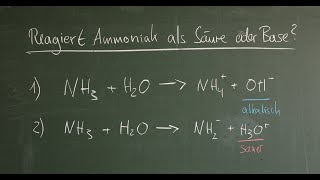 Reagiert Ammoniak als Säure oder Base?
1) NH₃ + H₂O → NH₄⁺ + OH⁻
alkalisch
2) NH₃ + H₂O → NH₂⁻ + H₃O⁺
sauer